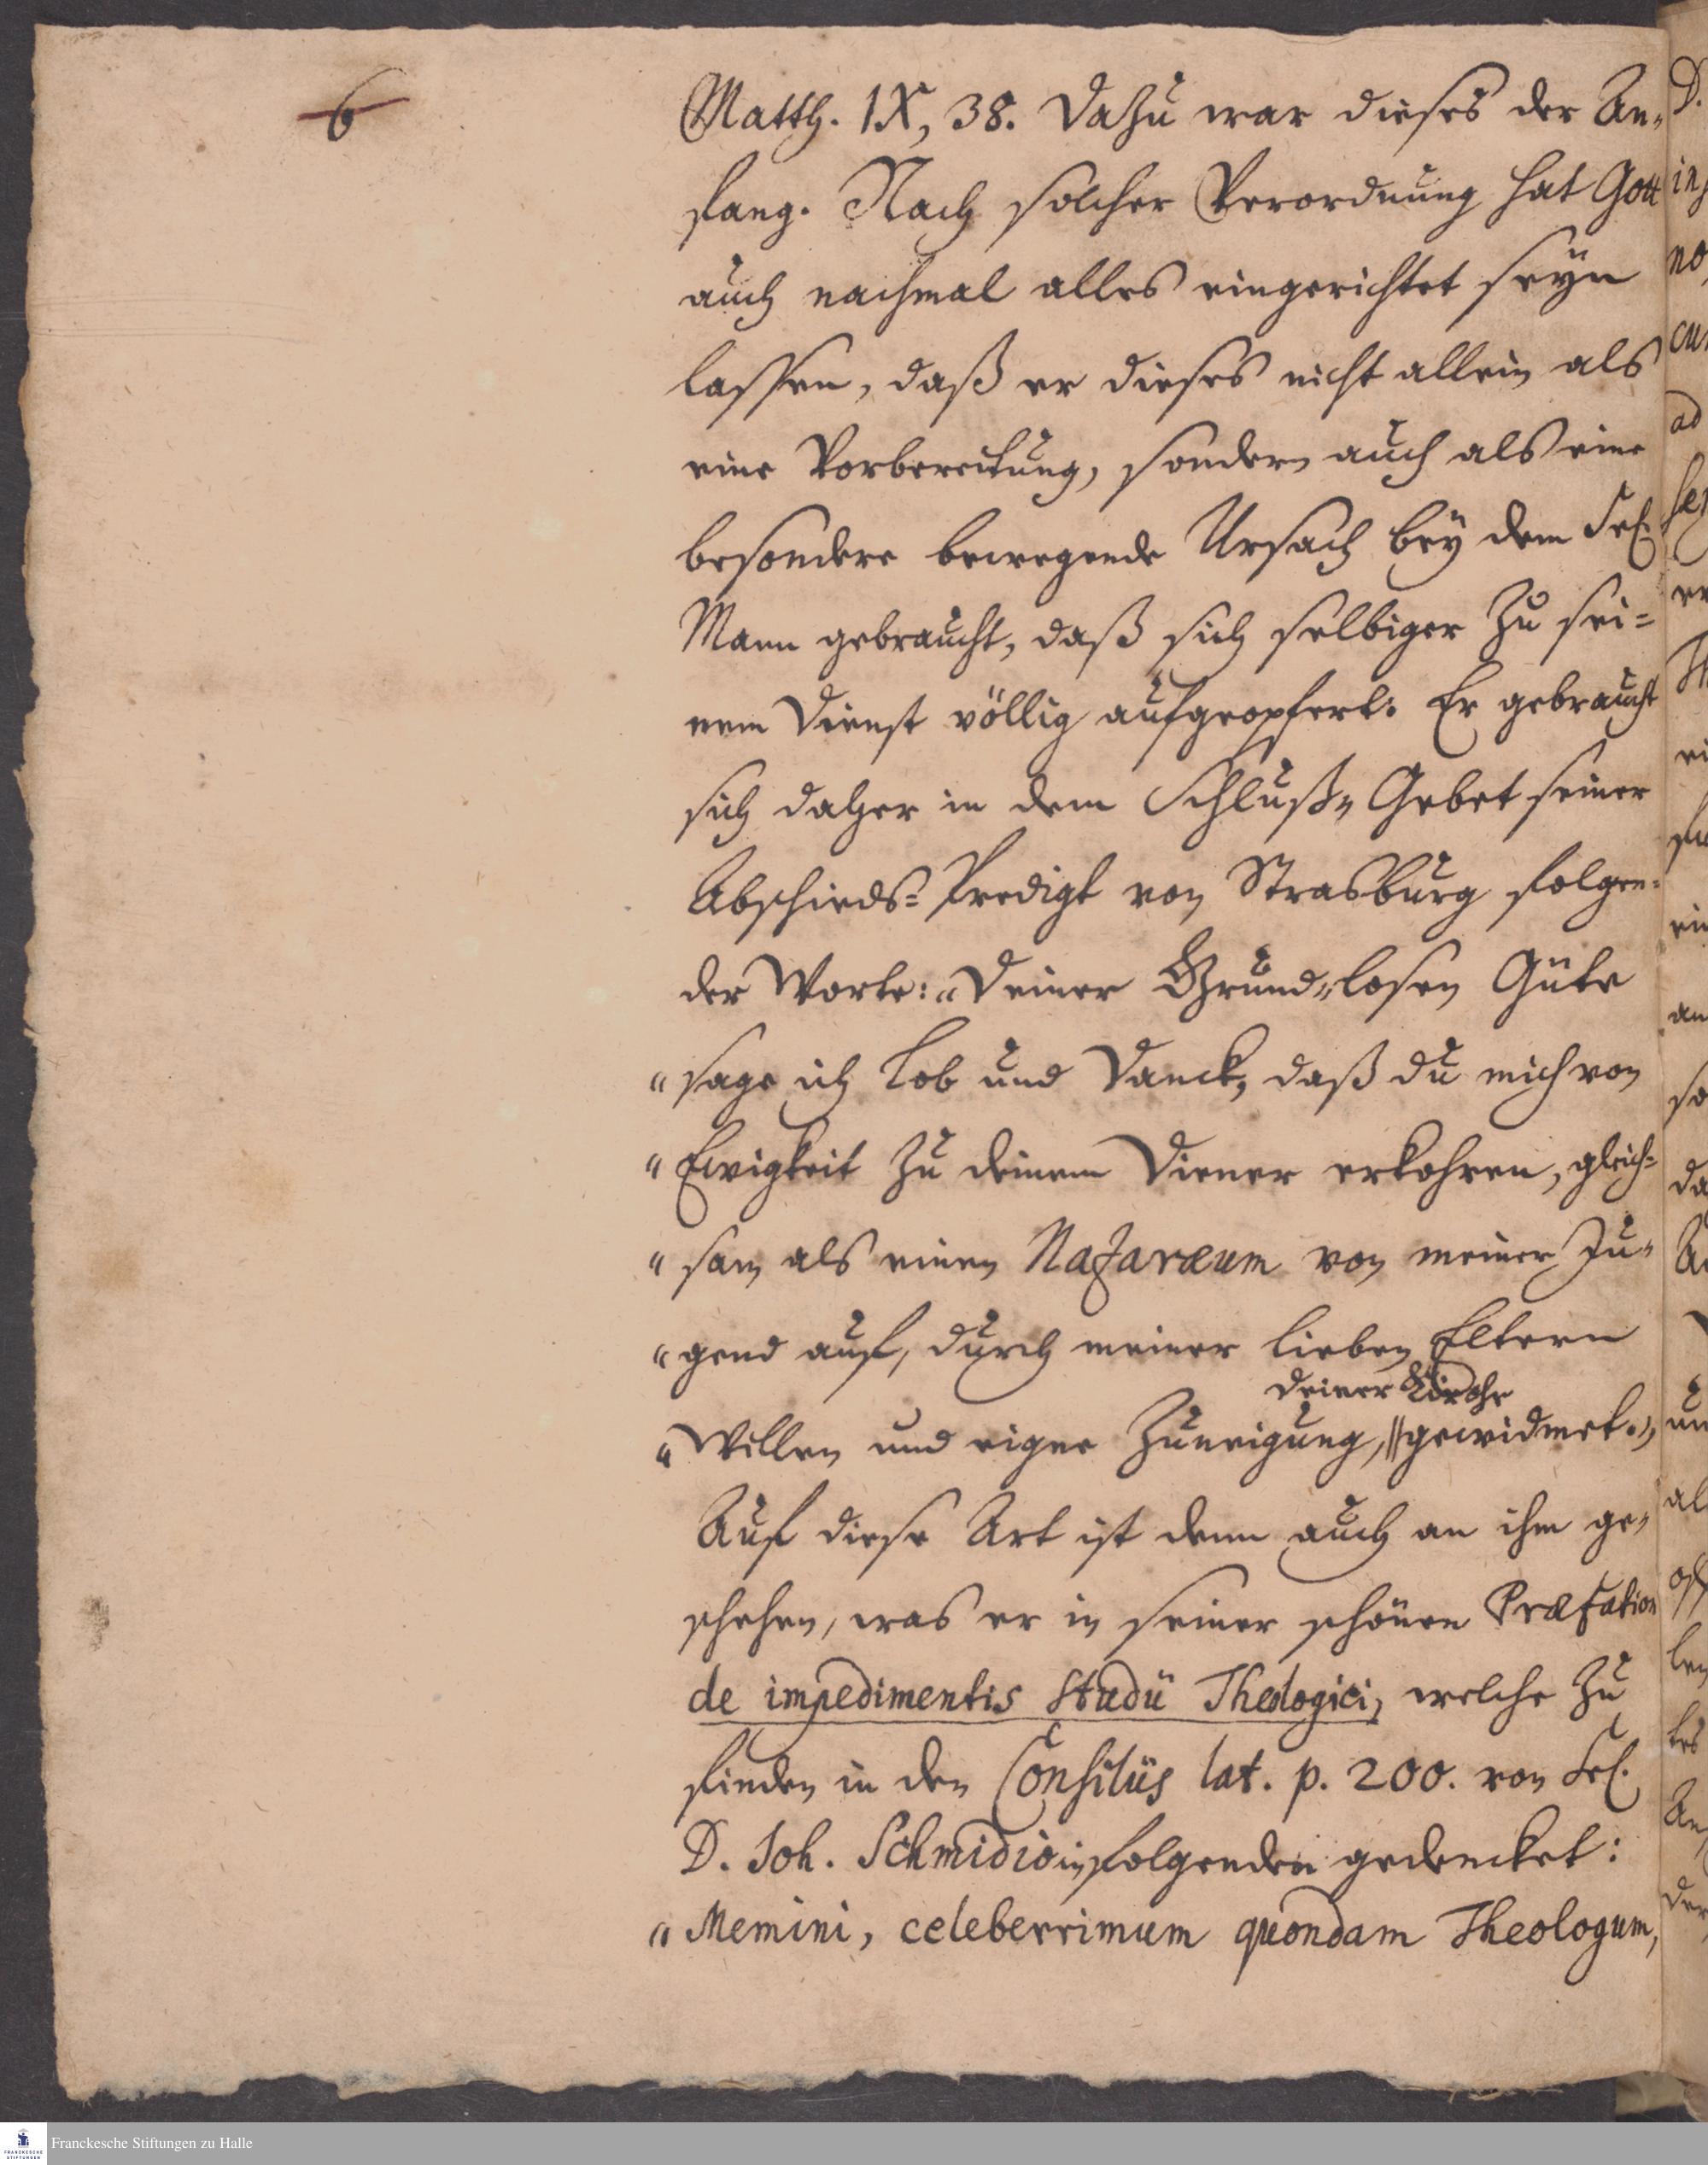 6
Matth. IX, 38. Dazu war dieses der An-
fang. Nach solcher Verordnung hat Gott
auch nachmal alles eingerichtet seÿn
lassen, daß er dieses nicht allein als
eine Vorbereitung, sondern auch als eine
besondere bewegende Ursach beÿ dem Sel.
Mann gebraucht, daß sich selbiger zu sei=
nem Dienst völlig aufgeopfert. Er gebraucht
sich daher in dem Schluß-Gebet seiner
Abschieds=Predigt von Strasburg folgen=
der Worte: „Deiner Grund-losen Güte
„ sage ich Lob und Danck, daß du mich von
„ Ewigkeit zu deinem Diener erkohren, gleich=
„ sam als einen Nazaræum von meiner Ju-
„ gend auf, durch meiner lieben Eltern
deiner Kirche
„ Willen und eigne Zuneigung, || gewidmet.„
Auf diese Art ist denn auch an ihm ge-
schehen, was er in seiner schönen Præfation
de impedimentis studii Theologici, welche zu
finden in den Consiliis lat. p. 200. von Sel.
D. Joh. Schmidio in folgenden gedencket:
„ Memini, celeberrimum quondam Theologum,
Franckesche Stiftungen zu Halle